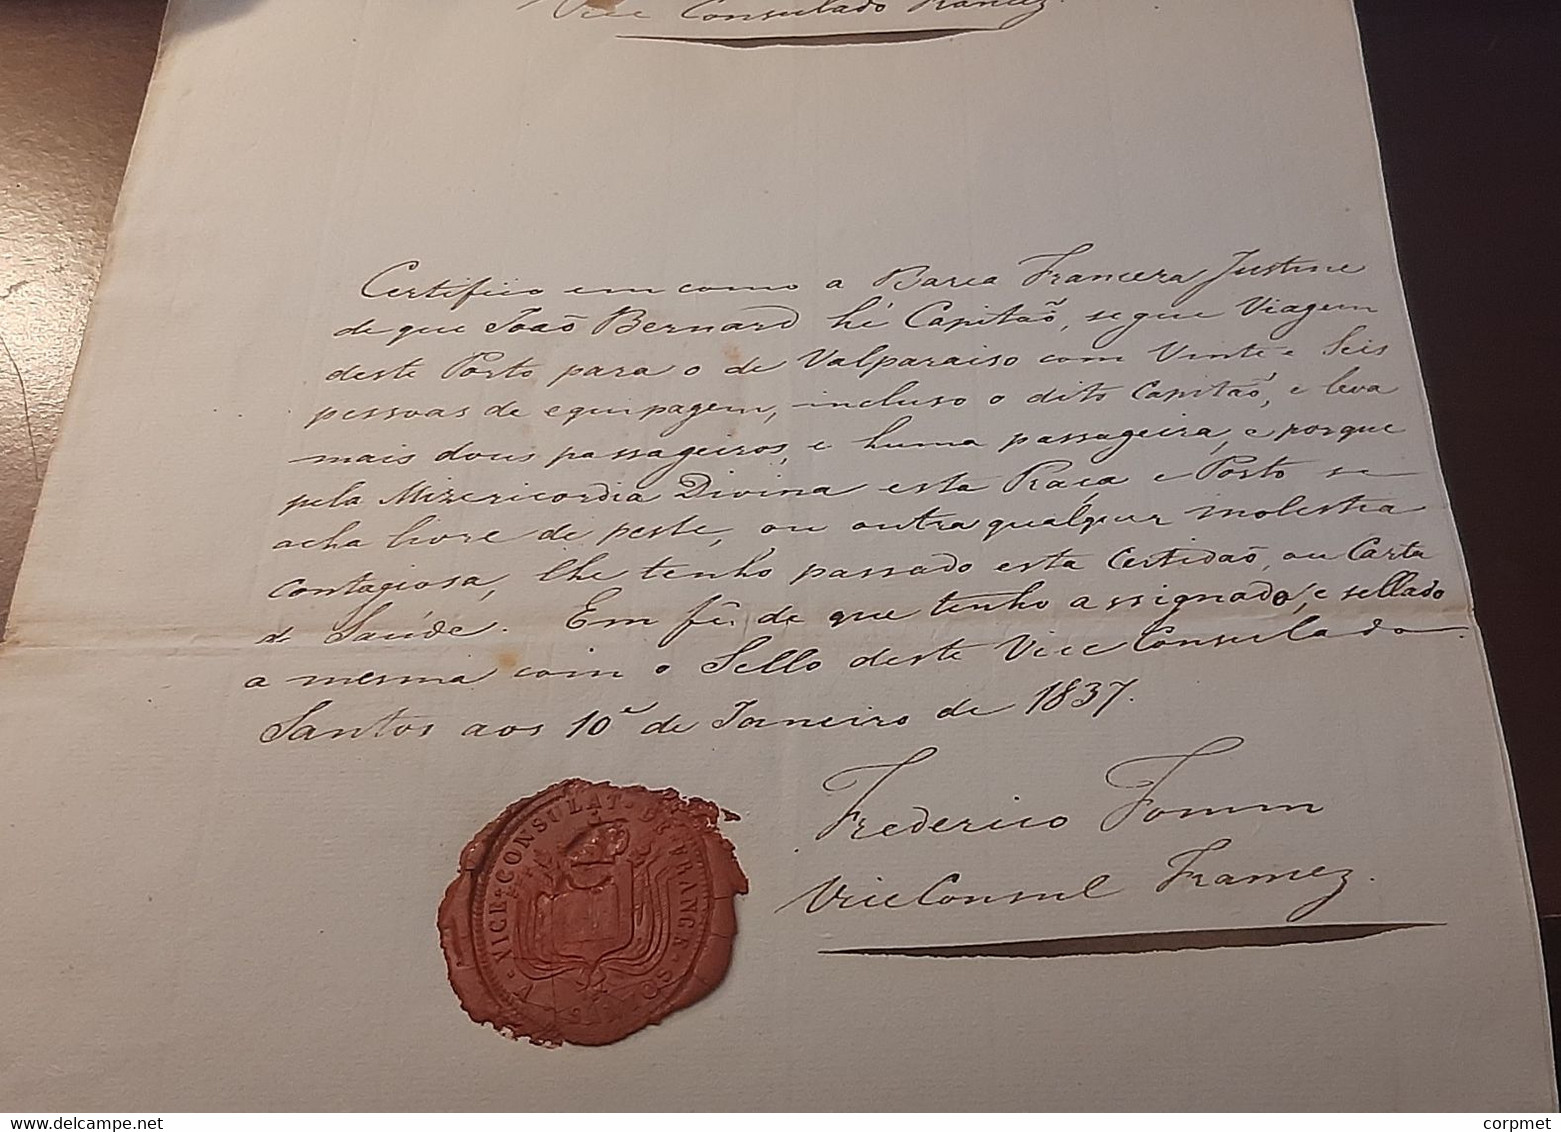 Vice Consulado Francez.
Certifico em como a Barca Franceza Justine
de que João Bernard hé Capitão, segue Viagem
deste Porto para o de Valparaiso com Vinte e Seis
pessoas de equipagem, incluso o dito Capitão, e leva
mais dous passageiros, e huma passageira, e porque
pela Mizericordia Divina esta Praça e Porto se
acha livre de peste, ou outra qualquer molestia
Contagiosa, lhe tenho passado esta Certidaõ, ou Carta
de Saúde. Em fé de que tenho assignado, e sellado
a mesma com o Sello deste Vice Consulado.
Santos aos 10 de Janeiro de 1837.
Frederico Fomm
Vice Consul Francez.
VICE-CONSULAT DE FRANCE
corpmet